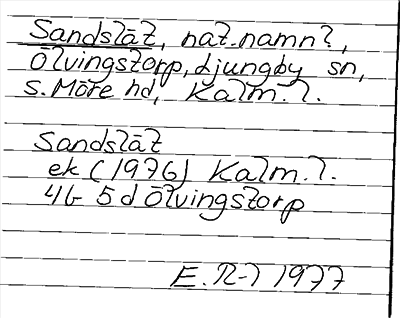 Sandslät, nat.namn?,
Ölvingstorp, Ljungby sn,
S. Möre hd, Kalm. l.
Sandslät
ek (1976) Kalm. l.
4G 5d Ölvingstorp
E. R-l 1977